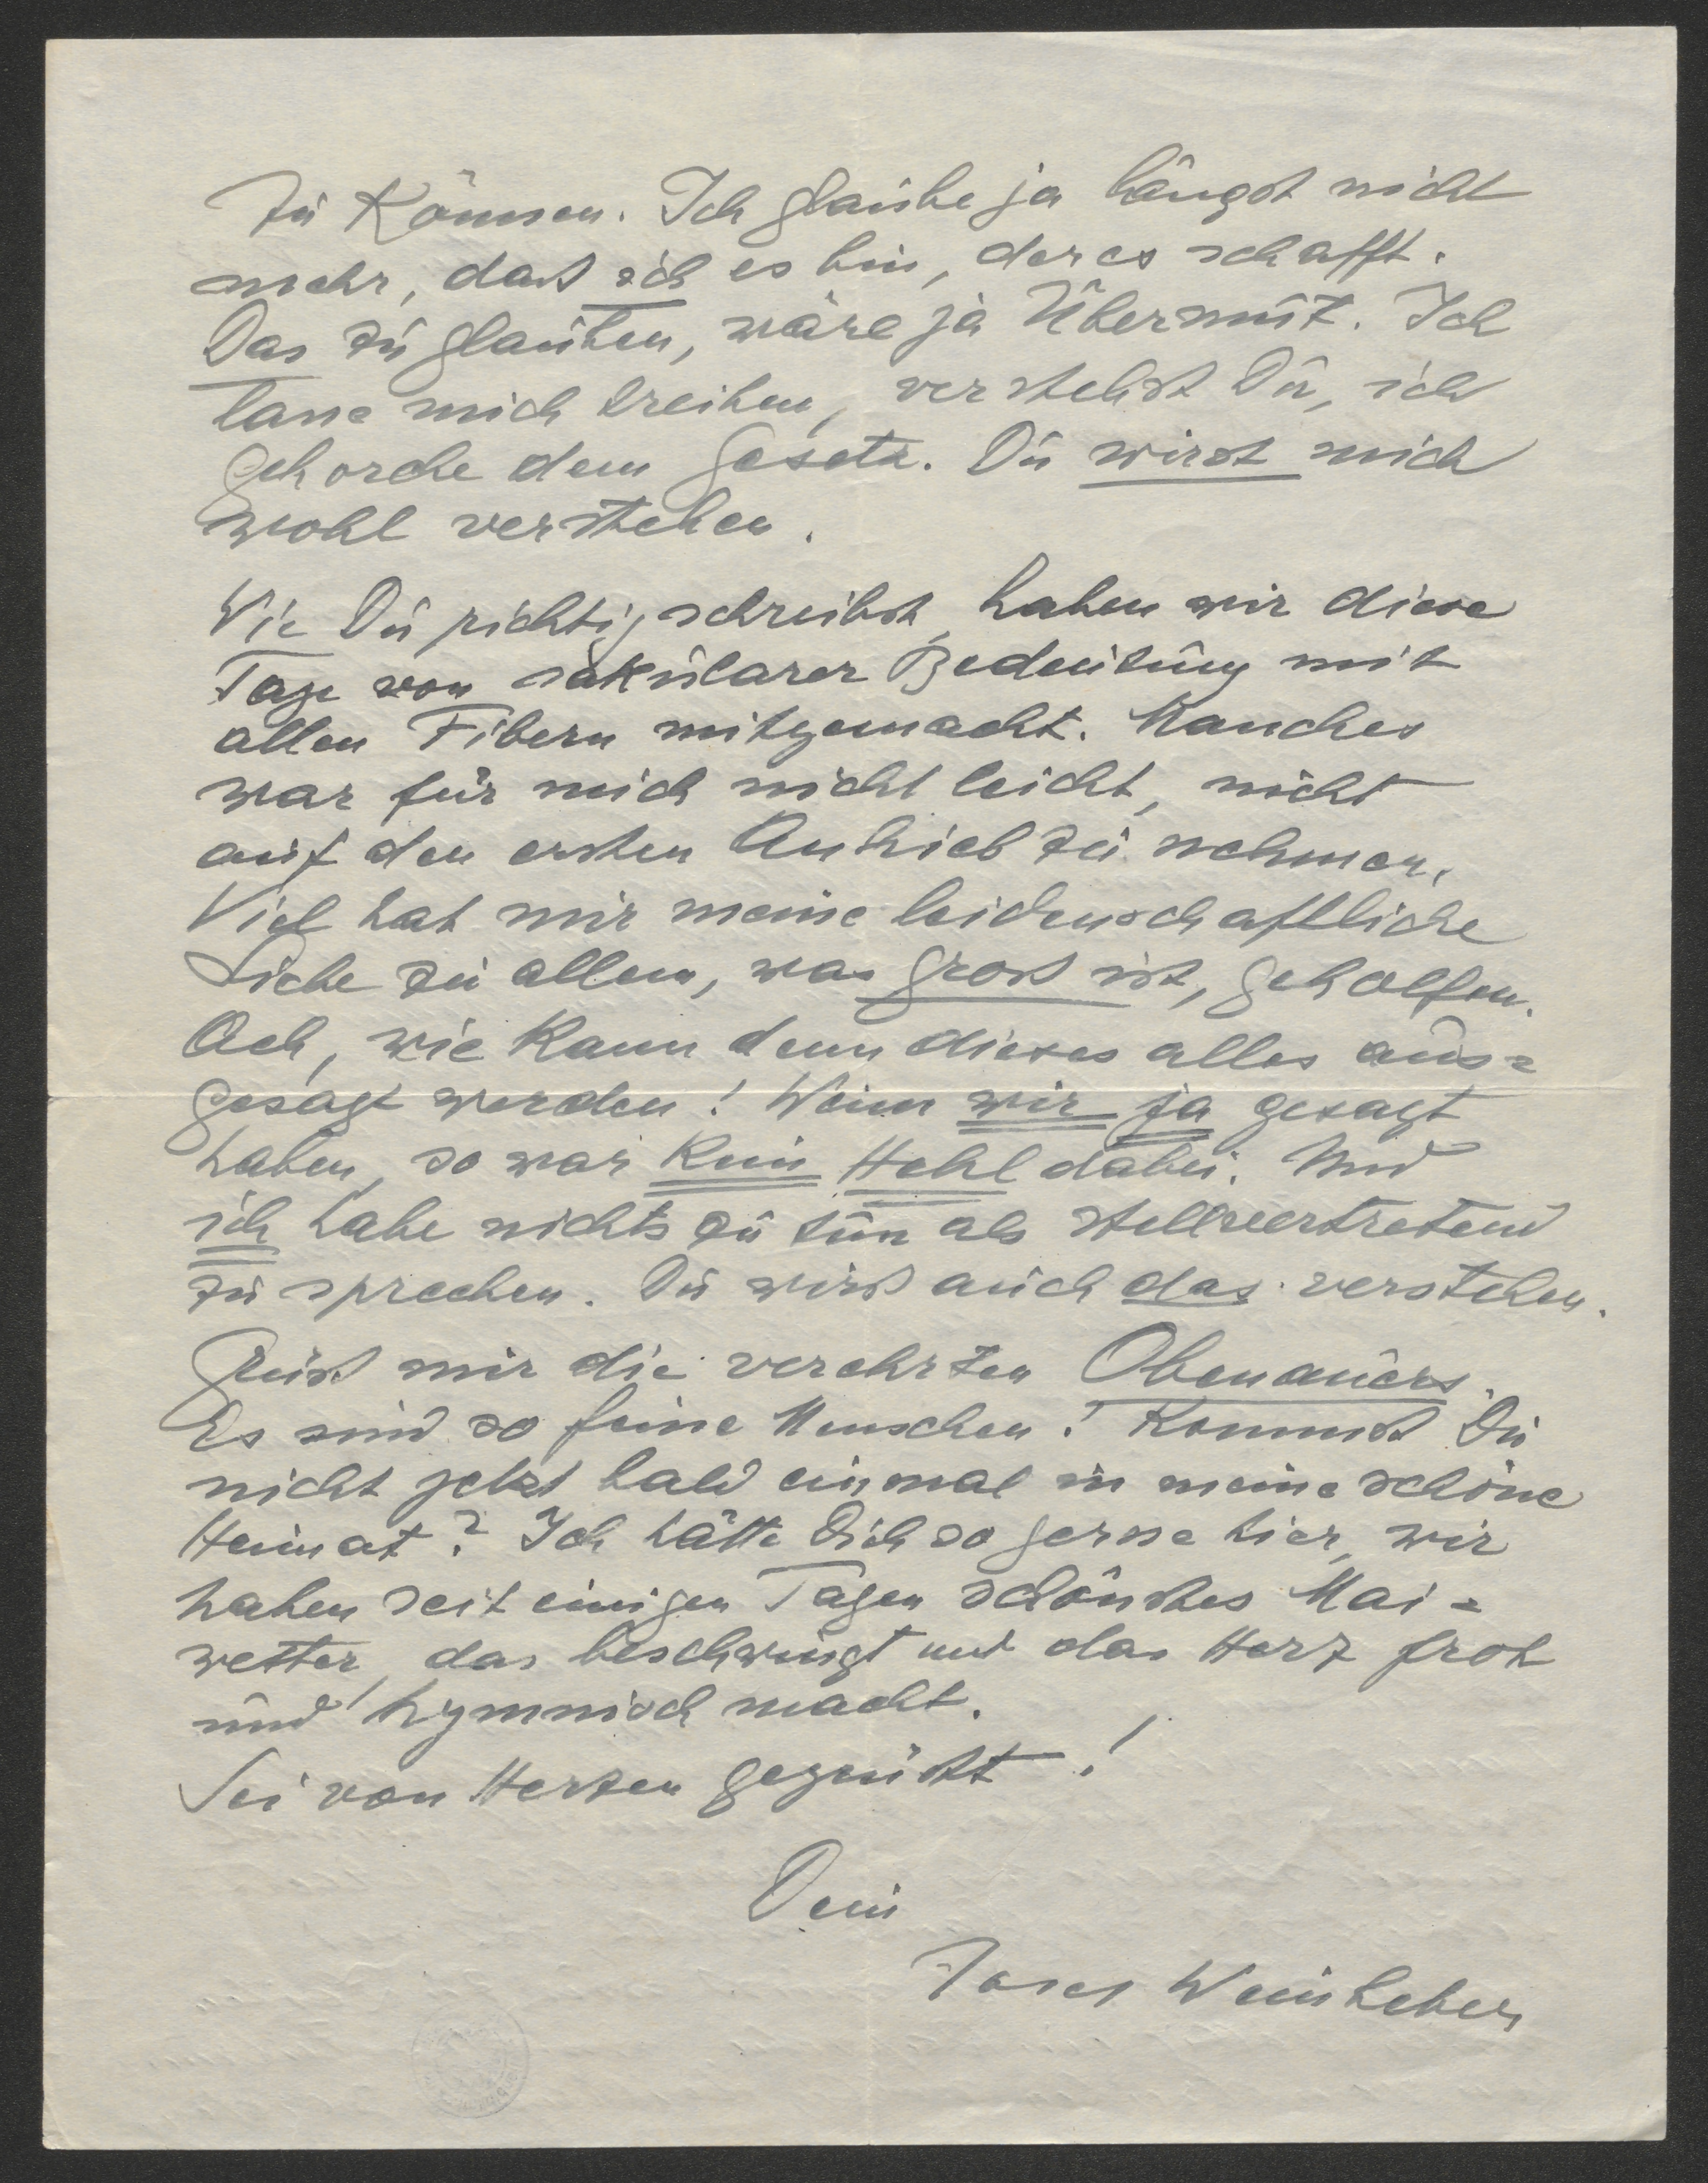 zu können. Ich glaube ja längst nicht
mehr, daß ich es bin, der es schafft.
Das zu glauben, wäre ja Übermut. Ich
lasse mich treiben, verstehst Du, ich
gehorche dem Gesetz. Du wirst mich
wohl verstehen.
Wie Du richtig schreibst, haben wir diese
Tage von säkularer Bedeutung mit
allen Fibern mitgemacht. Manches
war für mich nicht leicht, nicht
auf den ersten Anhieb zu nehmen.
Viel hat mir meine leidenschaftliche
Liebe zu allem, was groß ist, geholfen.
Ach, wie kann denn dieses alles aus=
gesagt werden! Wenn wir ja gesagt
haben, so war kein Hehl dabei. Und
ich habe nichts zu tun als stellvertretend
zu sprechen. Du wirst auch das verstehen.
Grüß mir die verehrten Obenauers.
Es sind so feine Menschen! Kommst Du
nicht jetzt bald einmal in meine schöne
Heimat? Ich hätte Dich so gerne hier, wir
haben seit einigen Tagen schönstes Mai=
wetter, das beschwingt und das Herz froh
und hymnisch macht.
Sei von Herzen gegrüßt!
Dein
Josef Weinheber